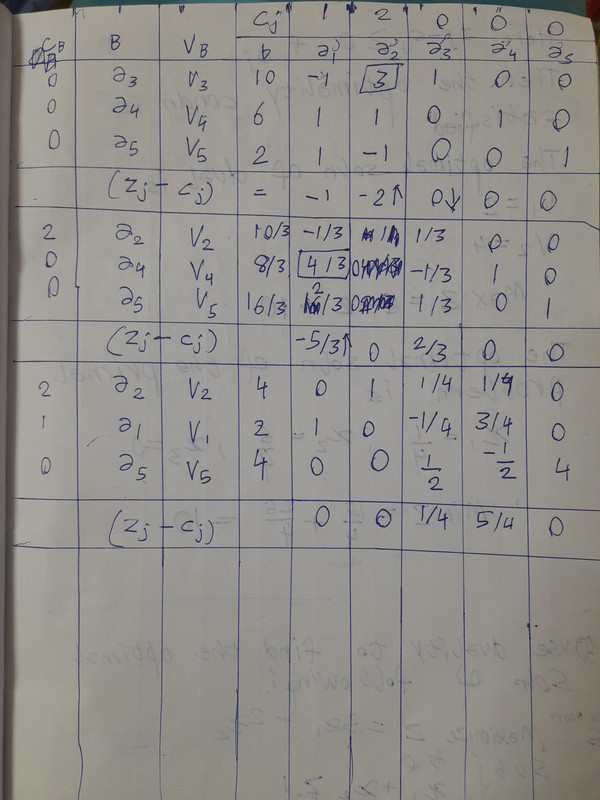 C_j 1 2 0 0 0
C_B B V_B b a_1 a_2 a_3 a_4 a_5
0 a_3 V_3 10 -1 3 1 0 0
0 a_4 V_4 6 1 1 0 1 0
0 a_5 V_5 2 1 -1 0 0 1
(Z_j - C_j) = -1 -2↑ 0↓ 0 0
2 a_2 V_2 10/3 -1/3 1/3 0 0
0 a_4 V_4 8/3 4/3 0 -1/3 1 0
0 a_5 V_5 16/3 2/3 0 1/3 0 1
(Z_j - C_j) -5/3↑ 0 2/3 0 0
2 a_2 V_2 4 0 1 1/4 1/4 0
1 a_1 V_1 2 1 0 -1/4 3/4 0
0 a_5 V_5 4 0 0 1/2 -1/2 4
(Z_j - C_j) 0 0 1/4 5/4 0